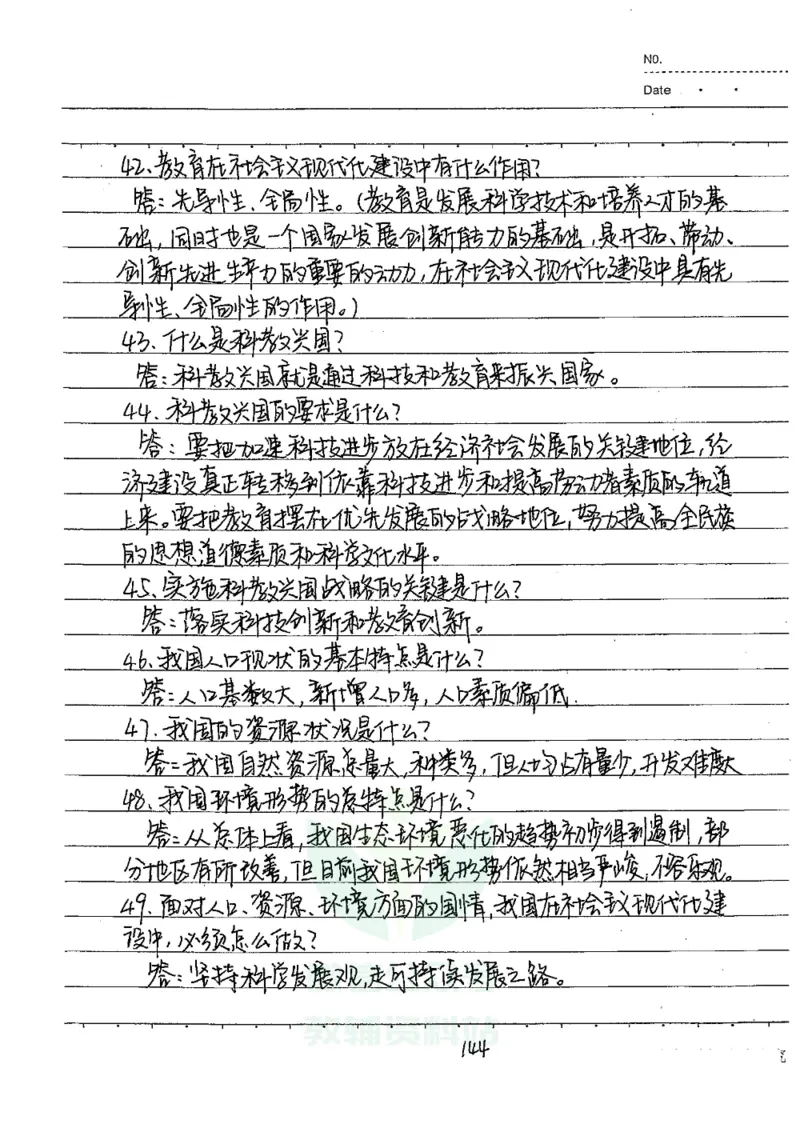 No.
Date
42、教育在社会主义现代化建设中有什么作用?
答:先导性、全局性。(教育是发展科学技术和培养人才的基
础,同时也是一个国家发展创新能力的基础,是开拓、带动、
创新先进生产力的重要的动力,在社会主义现代化建设中具有先
导性、全局性的作用。)
43、什么是科教兴国?
答:科教兴国就是通过科技和教育来振兴国家。
44、科教兴国的要求是什么?
答:要把加速科技进步放在经济社会发展的关键地位,经
济建设真正转移到依靠科技进步和提高劳动者素质的轨道
上来。要把教育摆在优先发展的战略地位,努力提高全民族
的思想道德素质和科学文化水平。
45、实施科教兴国战略的关键是什么?
答:落实科技创新和教育创新。
46、我国人口现状的基本特点是什么?
答:人口基数大,新增人口多,人口素质偏低.
47、我国的资源状况是什么?
答:我国自然资源总量大,种类多,但人均占有量少,开发难度大
48、我国环境形势的总特点是什么?
答:从总体上看,我国生态环境恶化的趋势初步得到遏制,部
分地区有所改善,但目前我国环境形势依然相当严峻,不容乐观。
49、面对人口、资源、环境方面的国情,我国在社会主义现代化建
设中,必须怎么做?
答:坚持科学发展观,走可持续发展之路。
教辅资料站
144